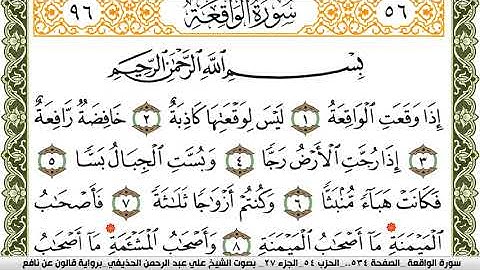 ٩٦ سُورَةُ الْوَاقِعَةِ ٥٦
بِسْمِ اللَّهِ الرَّحْمَٰنِ الرَّحِيمِ
إِذَا وَقَعَتِ الْوَاقِعَةُ ١ لَيْسَ لِوَقْعَتِهَا كَاذِبَةٌ ٢ خَافِضَةٌ رَّافِعَةٌ
٣ إِذَا رُجَّتِ الْأَرْضُ رَجًّا ٤ وَبُسَّتِ الْجِبَالُ بَسًّا ٥
فَكَانَتْ هَبَاءً مُّنبَثًّا ٦ وَكُنتُمْ أَزْوَاجًا ثَلَاثَةً ٧ فَأَصْحَابُ
الْمَيْمَنَةِ مَا أَصْحَابُ الْمَيْمَنَةِ ٨ وَأَصْحَابُ الْمَشْئَمَةِ مَا أَصْحَابُ
سورة الواقعة _ الصفحة ٥٣٤_ الحزب ٥٤_ الجزء ٢٧_ بصوت الشيخ علي عبد الرحمن الحذيفي_ برواية قالون عن نافع